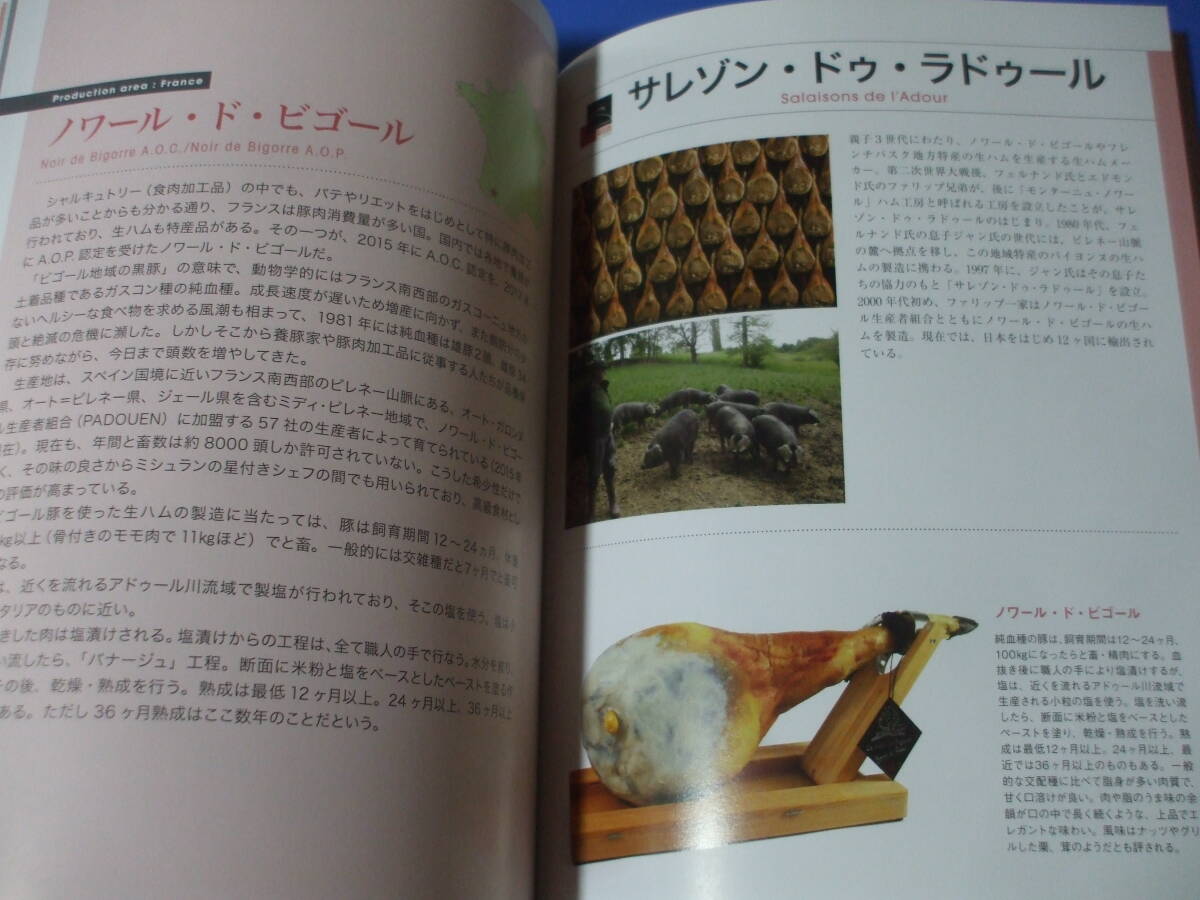 Production area : France
ノワール・ド・ビゴール
Noir de Bigorre A.O.C./Noir de Bigorre A.O.P.
シャルキュトリー（食肉加工品）の中でも、パテやリエットをはじめとして特に豚肉加工
品が多いことからも分かる通り、フランスは豚肉消費量が多い国。国内では各地で養豚が
行われており、生ハムも特産品がある。その一つが、2015年にA.O.C.認定を、
にA.O.P.認定を受けたノワール・ド・ビゴールだ。
「ビゴール地域の黒豚」の意味で、動物学的にはフランス南西部のガスコーニュ地方の
土着品種であるガスコン種の純血種。成長速度が遅いため増産に向かず、また
ないヘルシーな食べ物を求める風潮も相まって、1981年には純血種は雄豚2頭、雌豚34
頭と絶滅の危機に瀕した。しかしそこから養豚家や豚肉加工品に従事する人たちが品種保
存に努めながら、今日まで頭数を増やしてきた。
生産地は、スペイン国境に近いフランス南西部のピレネー山脈にある、オート・ガロンヌ
県、オート＝ピレネー県、ジェール県を含むミディ・ピレネー地域で、ノワール・ド・ビゴー
ル生産者組合（PADOUEN）に加盟する57社の生産者によって育てられている（2015年
現在）。現在も、年間と畜数は約8000頭しか許可されていない。こうした希少性だけで
く、その味の良さからミシュランの星付きシェフの間でも用いられており、高級食材とし
の評価が高まっている。
ビゴール豚を使った生ハムの製造に当たっては、豚は飼育期間12～24ヵ月、体重
kg以上（骨付きのモモ肉で11kgほど）でと畜。一般的には交雑種だと7ヶ月でと畜可
なる。
は、近くを流れるアドゥール川流域で製塩が行われており、そこの塩を使う。塩は
タリアのものに近い。
きした肉は塩漬けされる。塩漬けからの工程は、全て職人の手で行なう。水分を絞り、
い流したら、「パナージュ」工程。断面に米粉と塩をベースとしたペーストを塗る作
その後、乾燥・熟成を行う。熟成は最低12ヶ月以上。24ヶ月以上、36ヶ月以上
ある。ただし36ヶ月熟成はここ数年のことだという。
サレゾン・ドゥ・ラドゥール
Salaisons de l'Adour
親子3世代にわたり、ノワール・ド・ビゴールやフレ
ンチバスク地方特産の生ハムを生産する生ハムメー
カー。第二次世界大戦後、フェルナンド氏とエドモン
ド氏のファリップ兄弟が、後に「モンターニュ・ノワー
ル」ハム工房と呼ばれる工房を設立したことが、サレ
ゾン・ドゥ・ラドゥールのはじまり。1980年代、フェ
ルナンド氏の息子ジャン氏の世代には、ピレネー山脈
の麓へ拠点を移し、この地域特産のバイヨンヌの生ハ
ムの製造に携わる。1997年に、ジャン氏はその息子た
ちの協力のもと「サレゾン・ドゥ・ラドゥール」を設立。
2000年代初め、ファリップ一家はノワール・ド・ビゴー
ル生産者組合とともにノワール・ド・ビゴールの生ハ
ムを製造。現在では、日本をはじめ12ヶ国に輸出され
ている。
ノワール・ド・ビゴール
純血種の豚は、飼育期間は12～24ヶ月、
100kgになったらと畜・精肉にする。血
抜き後に職人の手により塩漬けするが、
塩は、近くを流れるアドゥール川流域で
生産される小粒の塩を使う。塩を洗い流
したら、断面に米粉と塩をベースとした
ペーストを塗り、乾燥・熟成を行う。熟
成は最低12ヶ月以上。24ヶ月以上、最
近では36ヶ月以上のものもある。一般
的な交配種に比べて脂身が多い肉質で、
甘く口溶けが良い。肉や脂のうま味の余
韻が口の中で長く続くような、上品でエ
レガントな味わい。風味はナッツやグリ
ルした栗、茸のようだとも評される。